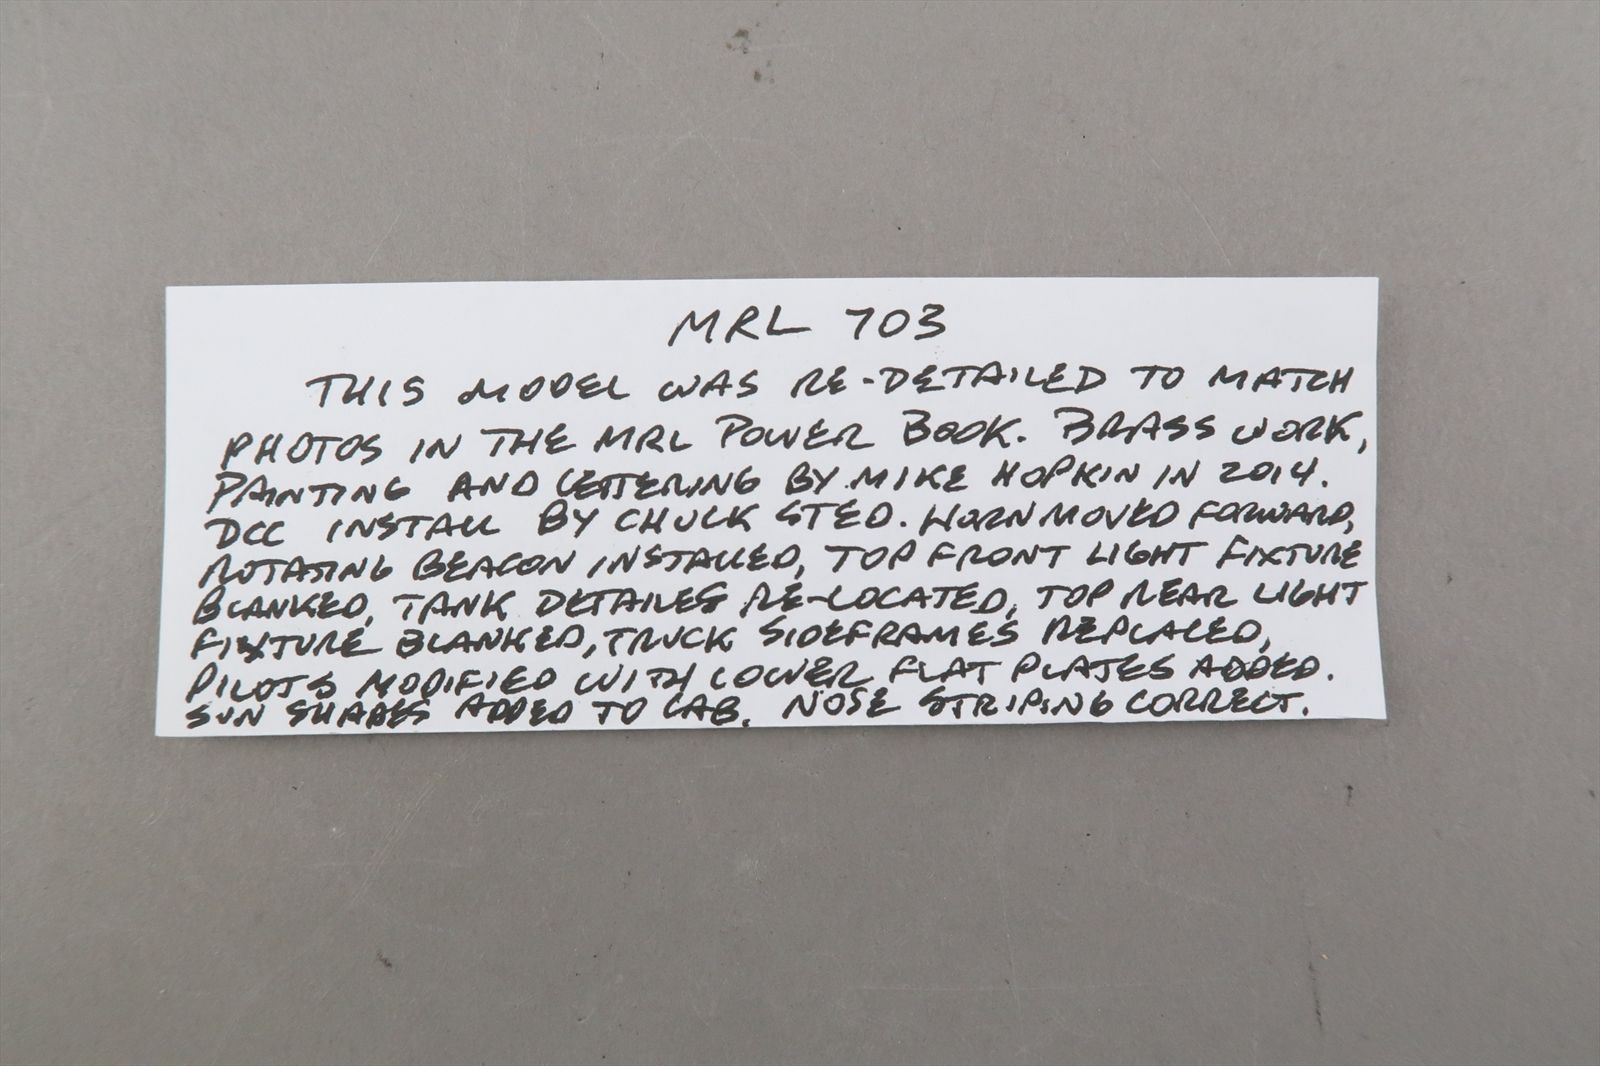 MRL 703
THIS MODEL WAS RE-DETAILED TO MATCH
PHOTOS IN THE MRL POWER BOOK. BRASS WORK,
PAINTING AND LETTERING BY MIKE HOPKIN IN 2014.
DCC INSTALL BY CHUCK STED. HORN MOVED FORWARD,
ROTATING BEACON INSTALLED, TOP FRONT LIGHT FIXTURE
BLANKED, TANK DETAILES RE-LOCATED, TOP REAR LIGHT
FIXTURE BLANKED, TRUCK SIDEFRAMES REPLACED,
PILOTS MODIFIED WITH LOWER FLAT PLATES ADDED.
SUN SHADES ADDED TO CAB. NOSE STRIPING CORRECT.